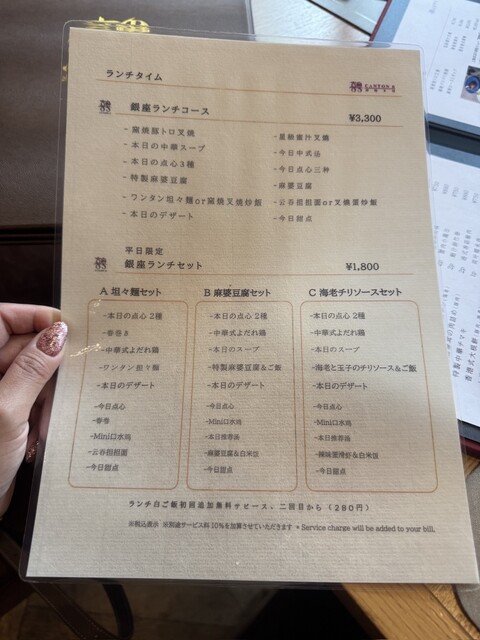 ランチタイム
銀座ランチコース
¥3,300
-窯焼豚トロ叉焼
-本日の中華スープ
-本日の点心3種
-特製麻婆豆腐
-ワンタン坦々麺or窯焼叉焼炒飯
-本日のデザート
-今日中式汤
-今日点心三种
-麻婆豆腐
-云吞担担面or叉烧蛋炒飯
-今日甜点
平日限定
銀座ランチセット
¥1,800
A 坦々麺セット
-本日の点心 2種
-春巻き
-中華式よだれ鶏
-ワンタン坦々麺
-本日のデザート
-今日点心
-春卷
-Mini口水鸡
-云吞担担面
-今日甜点
B 麻婆豆腐セット
-本日の点心 2種
-中華式よだれ鶏
-本日のスープ
-特製麻婆豆腐&ご飯
-本日のデザート
-今日点心
-Mini口水鸡
-本日推荐汤
-麻婆豆腐&白米饭
-今日甜点
C 海老チリソースセット
-本日の点心 2種
-中華式よだれ鶏
-本日のスープ
-海老と玉子のチリソース&ご飯
-本日のデザート
-今日点心
-Mini口水鸡
-本日推荐汤
-辣味蛋滑虾&白米饭
-今日甜点
ランチ白ご飯初回追加無料サービス、二回目から（280円）
※税込表示 ※別途サービス料 10%を加算させていただきます * Service charge will be added to your bill.